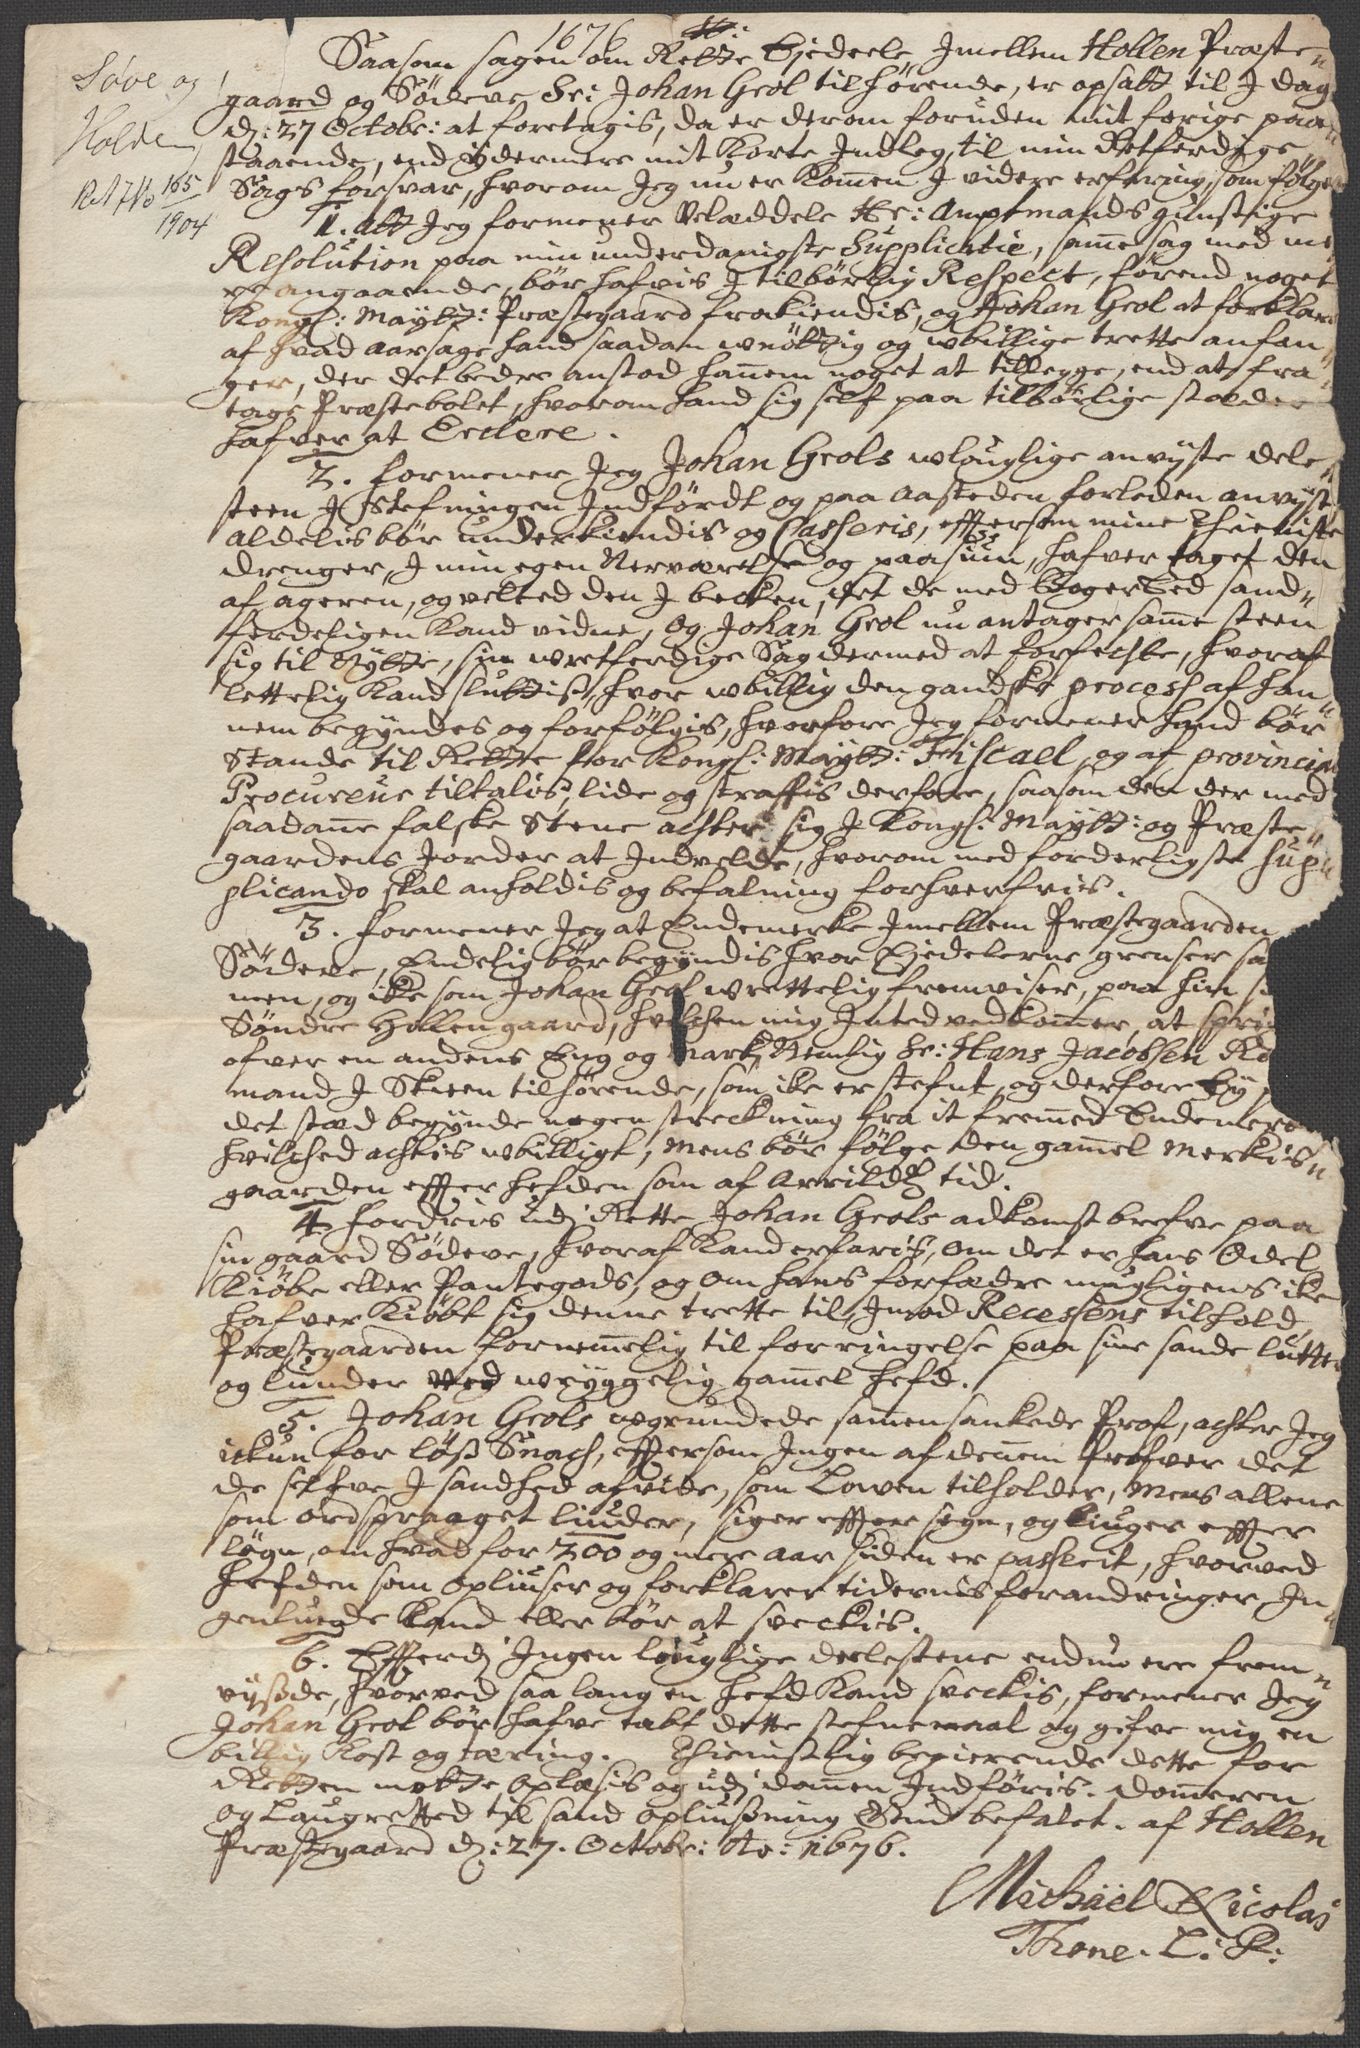 1676
Søve og
Holden
165
1904
Saasom sagen om Rette Ejedeele, Jmellem Hollen Præste-
gaard og Södeve Sr: Johan Geol tilhörende, er opsatt til J dag
d: 27 Octobr: at foretagis, da er derom foruden mit forige paa-
staaende, end ÿdermere mit korte Indleg, til min Retferdige
Sags forsvar, hvorom Jeg nu er kommen J videre erfaring, som fölger
1. Att Jeg formener Velæddele Hr: Amptmands gunstige
Resolution paa min underdanigste Supplicatie, samme sag med
angaaende, bör hafvis J tilbörlig Respect, förend noget
Kongl: Maÿtz: Præstegaard frakiendis, og Johan Geol at forklare
af hvad aarsage hand saadan unöttig og ubillige trette anfan-
ger, der det bedre anstod hannem noget at tillegge, end at fra
tage Præstebolet, hvorom hand sig self paa tilbörlige stæder
hafver at Erclere.
2. formener Jeg Johan Geols ulouglige anvÿste dele-
steen J Stefningen Indfördt og paa Aasteden forleden anvÿst,
aldelis bör underkiendis og Casseris, effterson mine thieniste
drenger, J min egen Nerværelse og paasiun, hafver taget den
af ageren, og velted den J becken, det de med Boger Eed sand-
ferdeligen kand vidne, og Johan Geol nu antager samme steen
sig til Nÿtte, sin uretferdige Sag dermed at forfechte, hvoraf
lettelig kand sluttis, hvor ubillig den gandske process af han-
nem begÿndes og forfölgis, hvorfore Jeg formener hand bör
Stande til Rette for Kongl: Maÿtz: Fiscael, og af provincial
Procureur tiltalis, lide og straffis derfore, saasom den der med
saadanne falske Stene achter sig J Kongl: Maÿtz: og Præste-
gaardens Jorder at Indvelde, hvorom med forderligste sup-
plicando skal anholdis og befalning forhverfvis.
3. formener Jeg at Endemerke Jmellem Præstegaarden
Södeve, Endelig bör begÿndis hvor Ejedelerne grenser sa
men, og ike som Johan Geol urettelig fremviser, paa hin si
Söndre Hollen gaard, hvilchen mig Inted vedkommer, at spri
ofver en andens Eng og Mark, Nemlig Sr: Hans Jacobsen
mand J Skeen tilhörende, som ike er stefnt, og derfore
det stæd begÿnde nogen streckning fra it fremmed Endemerke
hvilched achtis ubilligt, Mens bör fölge den gammel Merkis-
gaarden effter hefden som af Arrildz tid.
4. fordris udj Rette Johan Geols adkomst brefve paa
sin gaard Södeve, hvoraf kand erfaris, om det er hans Odel
Kiöbe eller Pantegods, og om hans forfædre muligens ike
hafver kiöbt sig denne trette til, Imod Recessens tilhold
Præstegaarden fornemmelig til forringelse paa sine sande lutter
og lunder ved urÿggelig gammel hefd.
5. Johan Geols ugrundede sammensankede Prof, achter Jeg
ickun for löss Snach, effterson Ingen af dennem prøfver det
de selfve J sandhed afvide, som Lowen tilholder, Mens allene
som ordspraaget liuder, siger effter sagn, og liuger effter
lögn, om hvad for 200 og mere aar siden er passerit, hvorved
hefden som opliuser og forklarer tidernis forandringer, In-
genlunde kand eller bör at sveckis.
6. Effterdj Ingen louglige deelestene endnu ere frem-
vÿsde, hvorved saa lang en hefd kand sveckis, formener Jeg
Johan Geol bör hafve tabt dette stefnemaal og gifve mig en
billig kost og tæring. Thienistlig begierende dette for
Retten motte oplæsis og udj dommen Indföris. Dommeren
og Laugretted til sand opliusning Gud befalet. af Hollen
Præstegaard d: 27. Octobr: Ao: 1676.
Michäel Nicolai
Thone. L: P: